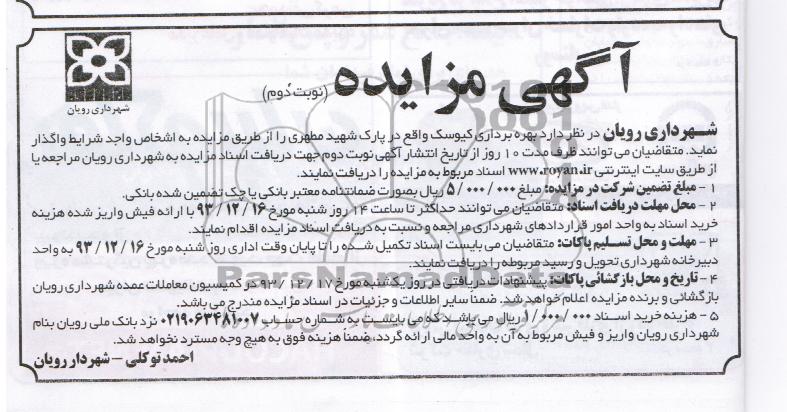 آگهی مزایده (نوبت دوم)
شهرداری رویان
شهرداری رویان در نظر دارد بهره برداری کیوسک واقع در پارک شهید مطهری را از طریق مزایده به اشخاص واجد شرایط واگذار
نماید. متقاضیان می توانند ظرف مدت ۱۰ روز از تاریخ انتشار آگهی نوبت دوم جهت دریافت اسناد مزایده به شهرداری رویان مراجعه یا
از طریق سایت اینترنتی www.royan.ir اسناد مربوط به مزایده را دریافت نمایند.
۱ - مبلغ تضمین شرکت در مزایده: مبلغ ۵/۰۰۰/۰۰۰ ریال بصورت ضمانتنامه معتبر بانکی یا چک تضمین شده بانکی.
۲ - محل مهلت دریافت اسناد: متقاضیان می توانند حداکثر تا ساعت ۱۴ روز شنبه مورخ ۹۳/۱۲/۱۶ با ارائه فیش واریز شده هزینه
خرید اسناد به واحد امور قراردادهای شهرداری مراجعه و نسبت به دریافت اسناد مزایده اقدام نمایند.
۳ - مهلت و محل تسلیم پاکات: متقاضیان می بایست اسناد تکمیل شده را تا پایان وقت اداری روز شنبه مورخ ۹۳/۱۲/۱۶ به واحد
دبیرخانه شهرداری تحویل و رسید مربوطه را دریافت نمایند.
۴ - تاریخ و محل بازگشائی پاکات: پیشنهادات دریافتی در روز یکشنبه مورخ ۹۳/۱۲/۱۷ در کمیسیون معاملات عمده شهرداری رویان
بازگشائی و برنده مزایده اعلام خواهد شد. ضمنا سایر اطلاعات و جزئیات در اسناد مزایده مندرج می باشد.
۵ - هزینه خرید اسناد ۱/۰۰۰/۰۰۰ ریال می باشد که می بایست به شماره حساب ۰۲۱۹۰۶۳۴۸۱۰۰۷ نزد بانک ملی رویان بنام
شهرداری رویان واریز و فیش مربوط به آن به واحد مالی ارائه گردد، ضمناً هزینه فوق به هیچ وجه مسترد نخواهد شد.
احمد توکلی - شهردار رویان
ParsNamadData